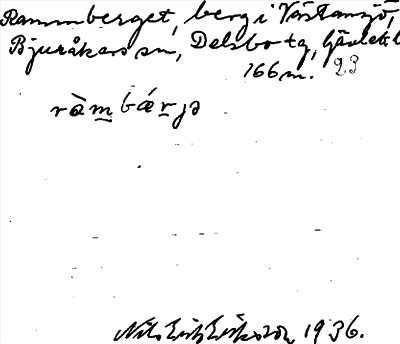 Rammberget, berg i Västansjö,
Bjuråkers sn, Delsbo tg, Gävleb. l
166 m. 23
ràm bǽrjə
Nils Erik Eriksson 1936.